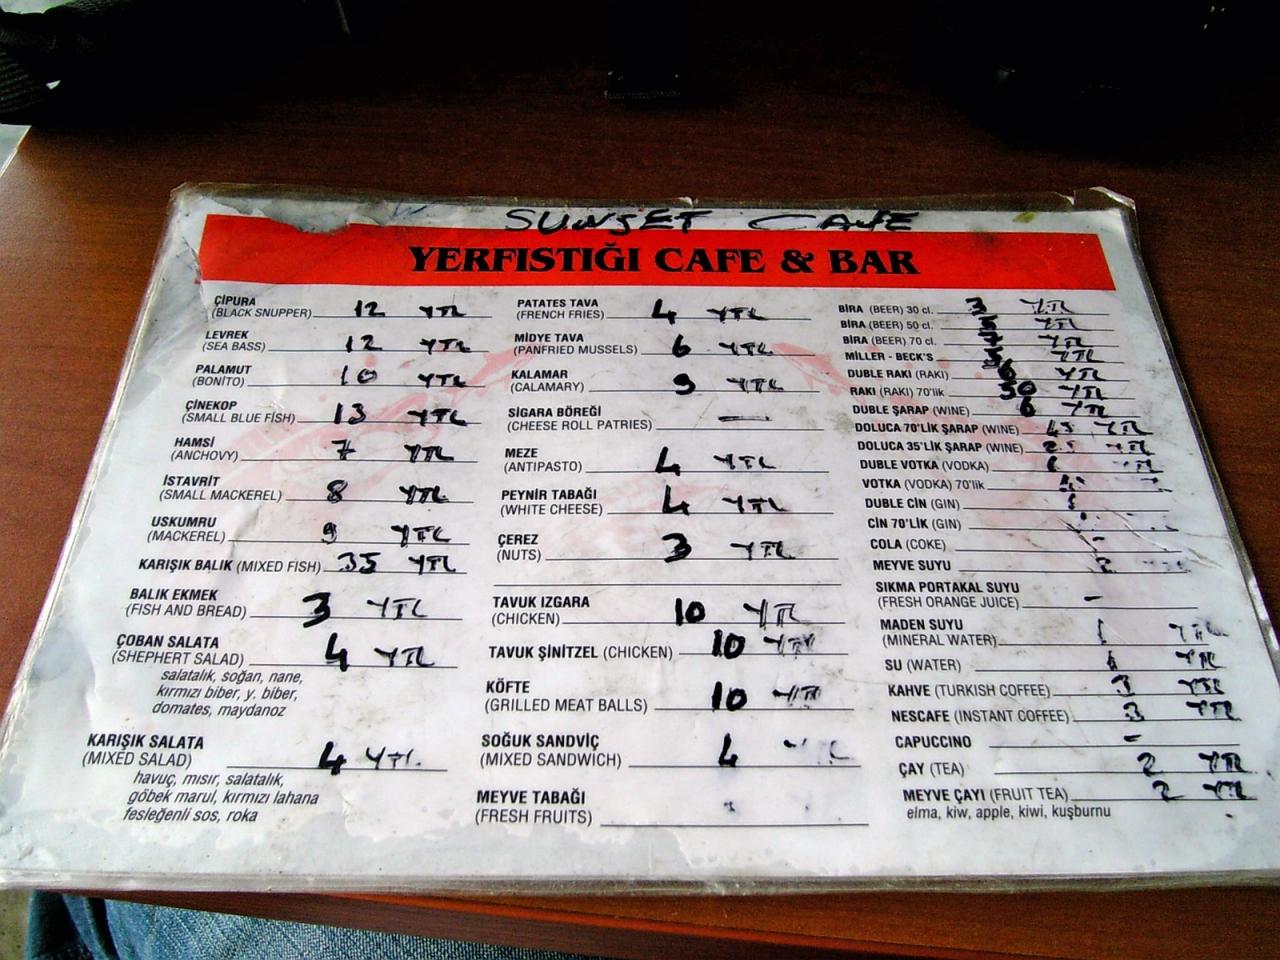 SUNSET CAFE
YERFISTIĞI CAFE & BAR
ÇİPURA
(BLACK SNUPPER) 12 YTL
LEVREK
(SEA BASS) 12 YTL
PALAMUT
(BONITO) 10 YTL
ÇİNEKOP
(SMALL BLUE FISH) 13 YTL
HAMSİ
(ANCHOVY) 7 YTL
İSTAVRİT
(SMALL MACKEREL) 8 YTL
USKUMRU
(MACKEREL) 9 YTL
KARIŞIK BALIK (MIXED FISH) 35 YTL
BALIK EKMEK
(FISH AND BREAD) 3 YTL
ÇOBAN SALATA
(SHEPHERT SALAD) 4 YTL
salatalık, soğan, nane,
kırmızı biber, y. biber,
domates, maydanoz
KARIŞIK SALATA
(MIXED SALAD) 4 YTL
havuç, mısır, salatalık,
göbek marul, kırmızı lahana
fesleğenli sos, roka
PATATES TAVA
(FRENCH FRIES) 4 YTL
MİDYE TAVA
(PANFRIED MUSSELS) 6 YTL
KALAMAR
(CALAMARY) 9 YTL
SİGARA BÖREĞİ
(CHEESE ROLL PATRIES) —
MEZE
(ANTIPASTO) 4 YTL
PEYNİR TABAĞI
(WHITE CHEESE) 4 YTL
ÇEREZ
(NUTS) 3 YTL
TAVUK IZGARA
(CHICKEN) 10 YTL
TAVUK ŞİNİTZEL (CHICKEN) 10 YTL
KÖFTE
(GRILLED MEAT BALLS) 10 YTL
SOĞUK SANDVİÇ
(MIXED SANDWICH) 4
MEYVE TABAĞI
(FRESH FRUITS)
BİRA (BEER) 30 cl. 3 YTL
BİRA (BEER) 50 cl. YTL
BİRA (BEER) 70 cl. YTL
MILLER - BECK'S YTL
DUBLE RAKI (RAKI) 6 YTL
RAKI (RAKI) 70'lik 50 YTL
DUBLE ŞARAP (WINE) 6 YTL
DOLUCA 70'LİK ŞARAP (WINE) YTL
DOLUCA 35'LİK ŞARAP (WINE) YTL
DUBLE VOTKA (VODKA)
VOTKA (VODKA) 70'lik
DUBLE CİN (GIN)
CİN 70'LİK (GIN)
COLA (COKE) -
MEYVE SUYU 2
SIKMA PORTAKAL SUYU
(FRESH ORANGE JUICE) -
MADEN SUYU
(MINERAL WATER) 1 YTL
SU (WATER) 1 YTL
KAHVE (TURKISH COFFEE) 3 YTL
NESCAFE (INSTANT COFFEE) 3 YTL
CAPUCCINO -
ÇAY (TEA) 2 YTL
MEYVE ÇAYI (FRUIT TEA) 2 YTL
elma, kiw, apple, kiwi, kuşburnu